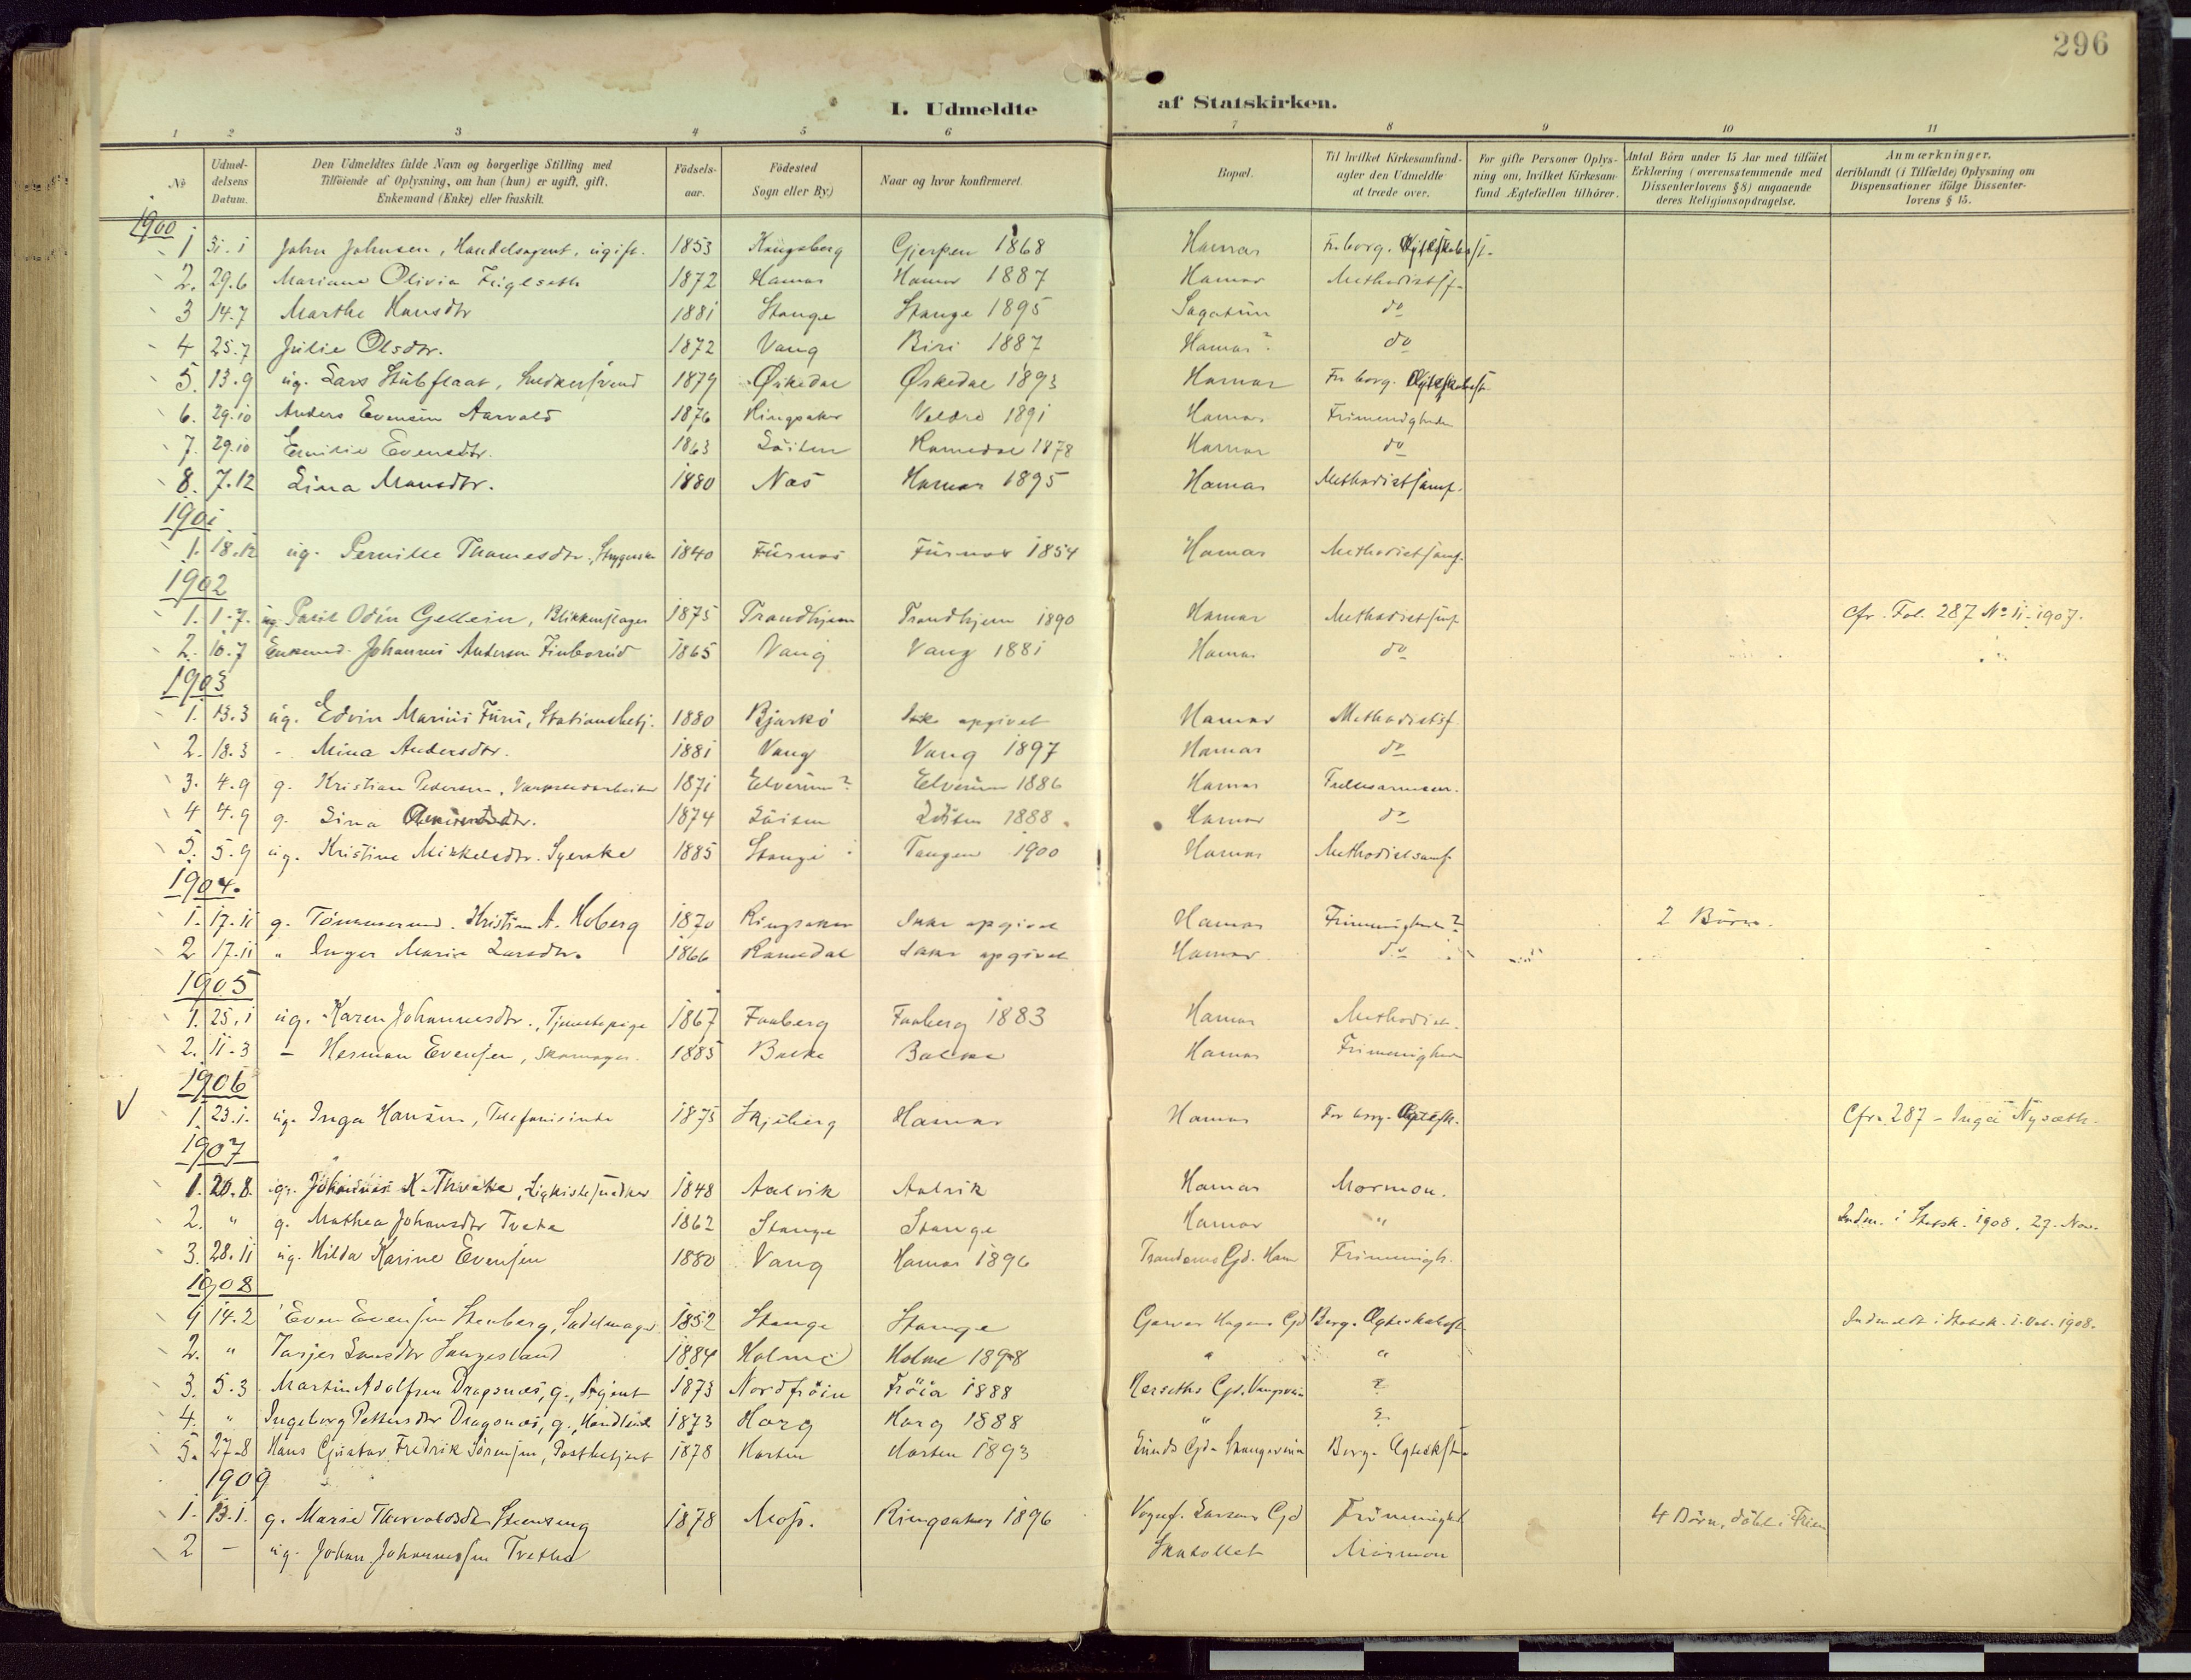 296
I. Udmeldte af Statskirken.
1 2 3 4 5 6 7 8 9 10 11
No
Udmeldelsens Datum.
Den Udmeldtes fulde Navn og borgerlige Stilling med Tilföiende af Oplysning, om han (hun) er ugift, gift, Enkemand (Enke) eller fraskilt.
Födselsaar.
Födested Sogn eller By.)
Naar og hvor konfirmeret.
Bopæl.
Til hvilket Kirkesamfund agter den Udmeldte at træde over.
For gifte Personer Oplysning om, hvilket Kirkesamfund Ægtefællen tilhörer.
Antal Börn under 15 Aar med tilföiet Erklæring (overensstemmende med Dissenterlovens § 8) angaaende deres Religionsopdragelse.
Anmærkninger, deriblandt (i Tilfælde) Oplysning om Dispensationer ifölge Dissenterlovens § 15.
1900
1 31.1 John Johnsen, Handelsagent, ugift. 1853 Kongsberg Gjerpen 1868 Hamar Fr. borg.
2. 29.6 Mariane Olivia Fuglseth 1872 Hamar Hamar 1887 Hamar Methodistsf.
3 14.7 Marthe Hansdtr 1881 Stange Stange 1895 Sagatun do
4 25.7 Julie Olsdtr. 1872 Vang Biri 1887 Hamar? do
5. 13.9 ug. Lars Stubflaat, Snedkersvend 1879 Ørkedal Ørkedal 1893 Hamar Fr. borg.
6. 29.10 Anders Evensen Aarvold 1876 Ringsaker Veldre 1891 Hamar Frimenigheden
7. 29.10 Emilie Evensdtr. 1863 Löiten Romedal 1878 Hamar do
8. 7.12 Lina Monsdtr. 1880 Nes Hamar 1895 Hamar Methodistsamf.
1901
1. 18.12 ug. Pernille Thomesdtr., Strygerske 1840 Furnes Furnes 1854 Hamar Methodistsamf.
1902
1. 1.7. ug. Paul Odin Gellein, Blikkenslager 1875 Trondhjem Trondhjem 1890 Hamar Methodistsamf. Cfr. Fol. 287 No 11-1907.
2. 10.7 Enkemd. Johannes Andersen Finborud 1865 Vang Vang 1881 Hamar do
1903
1. 13.3 ug. Edvin Marius Furu, Stationsbetj. 1880 Bjarkö Ikke opgivet Hamar Methodistsf.
2. 18.3 - Mina Andersdtr. 1881 Vang Vang 1897 Hamar do
3. 4.9 g. Kristian Pedersen, 1871 Elverum? Elverum 1886 Hamar Frelsesarmeen.
4 4.9 g. Lina 1874 Löiten Löiten 1888 Hamar do
5. 5.9 ug. Kristine Mikkelsdtr. Syerske 1885 Stange Tangen 1900 Hamar Methodistsamf.
1904.
1. 17.11 g. Tömmermd. Kristian A. Hoberg 1870 Ringsaker Ikke opgivet Hamar Frimenigheden? 2 Börn.
2 17.11 " Inger Marie Larsdtr. 1866 Romedal Ikke opgivet Hamar do
1905
1. 25.1 ug. Karen Johannesdtr., Tjenestepige 1867 Faaberg Faaberg 1883 Hamar Methodist.
2. 11.3 - Herman Evensen, Skomager. 1885 Balke Balke Hamar Frimenigheden
1906
1. 23.1. ug. Inga Hansen, Telefonistinde 1875 Skjeberg Hamar Hamar For borg. Cfr. 287 - Inga Nysæth.
1907
1. 20.8. g. Johannes K. , Ligkistesnedker 1848 Aalvik Aalvik Hamar Mormon.
2. " g. Mathea Johansdtr Tveta 1862 Stange Stange Hamar " Indm. i Statsk. 1908. 27. Nov.
3. 28.11 ug. Hilda Karine Evensen 1880 Vang Hamar 1896 Gd. Ham Frimenigh.
1908
1 14.2 Even Evensen Stenberg, Sadelmager 1852 Stange Stange Garver Hagens Gd Borg. Indmeldt i Statsk. 1908.
2. " 1884 Holme Holme 1898 " "
3. 5.3 Martin Adolfsen Dragsnes, g., Agent 1873 Nordfröien Fröia 1888 Gd. ?
4. " Ingeborg Pettersdtr Dragsnes, g., 1873 Horg Horg 1888 " ?
5. 27.8 Hans Gustav Fredrik Sörensen, Postbetjent 1878 Horten Horten 1893 Lunds Gd. Borg.
1909
1. 13.1. g. Marie Thorvaldsdtr Stenseng 1878 Moss. Ringsaker 1896 Vognf. Larsens Gd Frimenighed 4 Börn, döbt i Frim
2 - ug. Johan Johannessen Tvetha Mormon